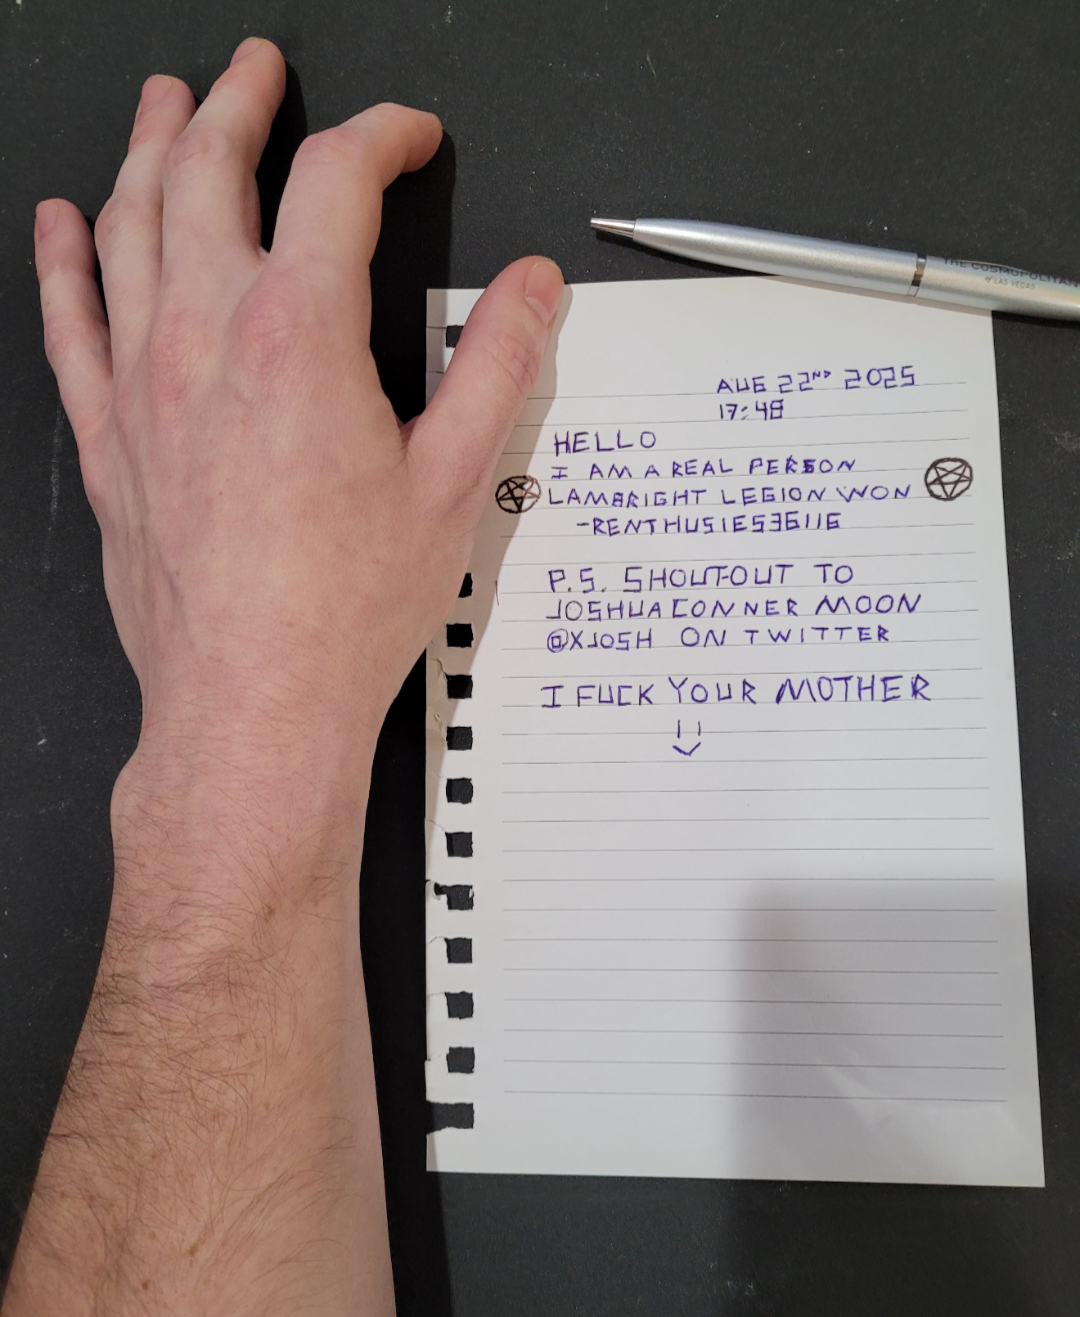 THE COSMOPOLITAN
OF LAS VEGAS
AUG 22ND 2025
17:48
HELLO
I AM A REAL PERSON
LAMBRIGHT LEGION WON
-RENTHUSIES36116
P.S. SHOUT-OUT TO
JOSHUA CONNER MOON
@XJOSH ON TWITTER
I FUCK YOUR MOTHER